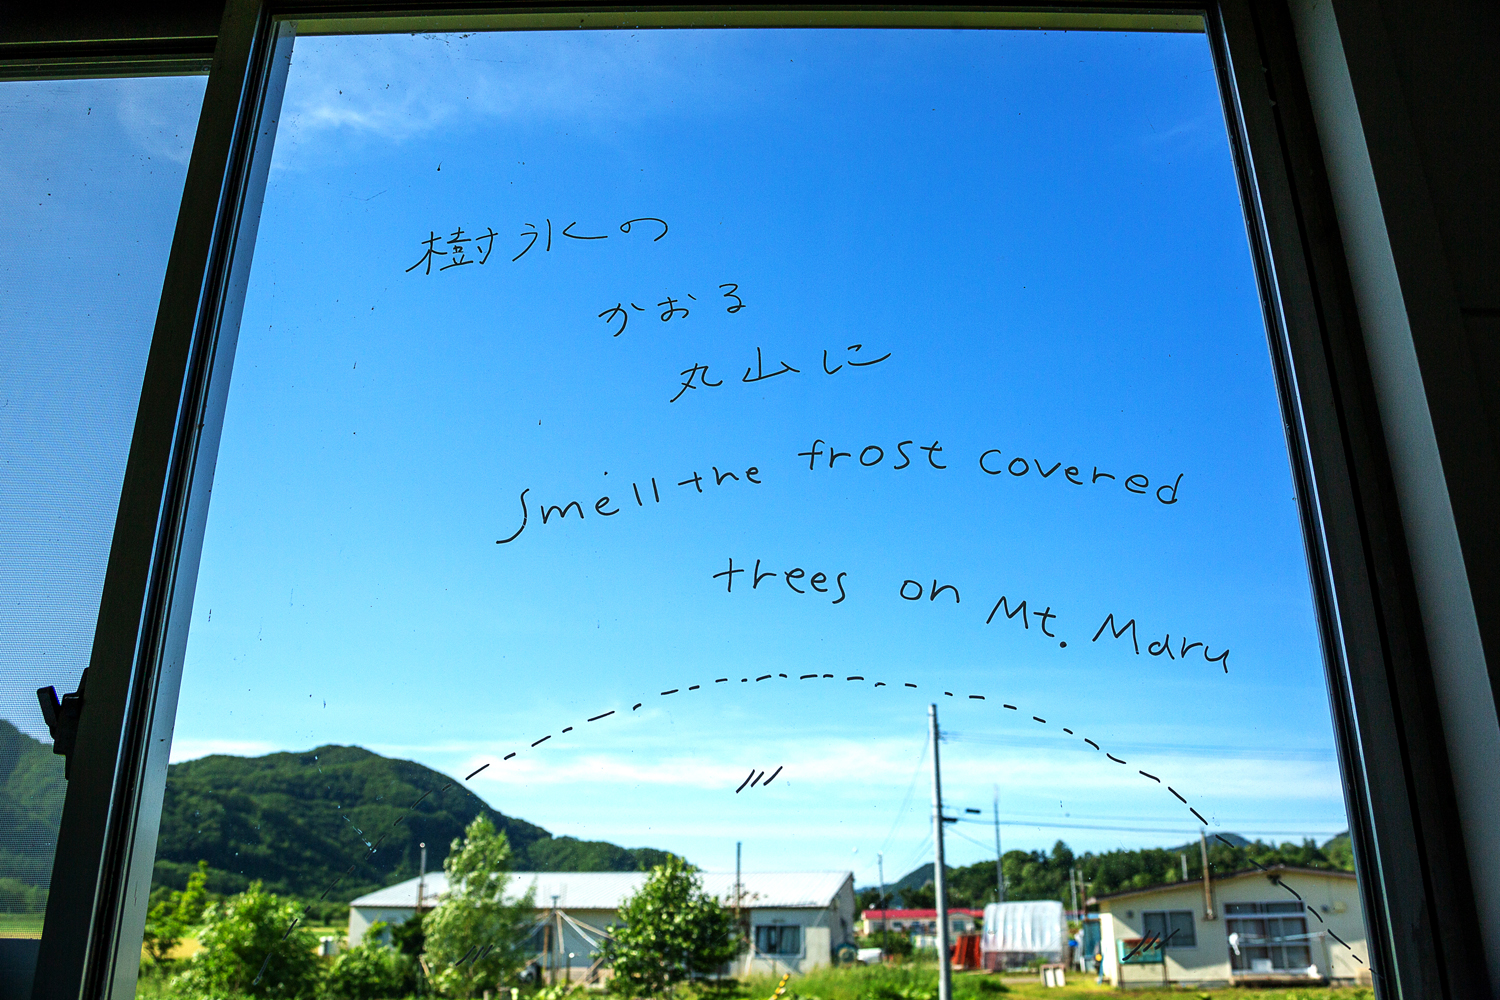 樹氷の
かおる
丸山に
Smell the frost covered
trees on Mt. Maru